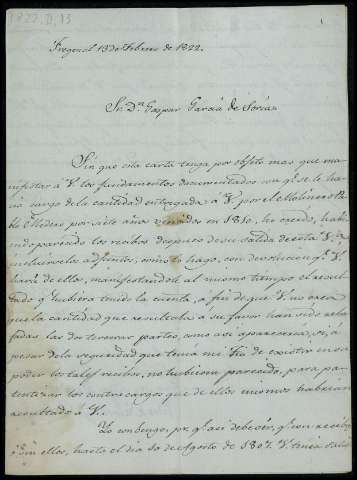 1822.II.13
1
Fregenal 13 de Febrero de 1822.
Sr. Dn. Gaspar Garcia de Soria
Sin que esta carta tenga por objeto mas que ma-
nifestar á V. los fundamentos documentados con qe. se le ha-
cia cargo de la cantidad entregada á V. por el Molinero Pa-
blo Midero por siete años vencidos en 1810, he creido, habi-
endo parecido los recibos despues de su salida de esta V.ª
incluirselos adjuntos, como lo hago, con devolucion qe. V.
hará de ellos, manifestandole al mismo tiempo el resul-
tado qe. hubiera tenido la cuenta, á fin de que V. no crea
que la cantidad que resultaba á su favor han sido reba-
jadas las dos terceras partes, como asi apareceria, si, á
pesar de la seguridad que tenia mi Tia de existir en su
poder los tales recibos, no hubieran parecido, para pa-
tentizar los contrecargos que de ellos mismos habrian
resultado á V.
Yo convengo, por qe. asi debe ser, qe. con recibos
ó sin ellos, hasta el dia 10 de Agosto de 1807. V. tenia